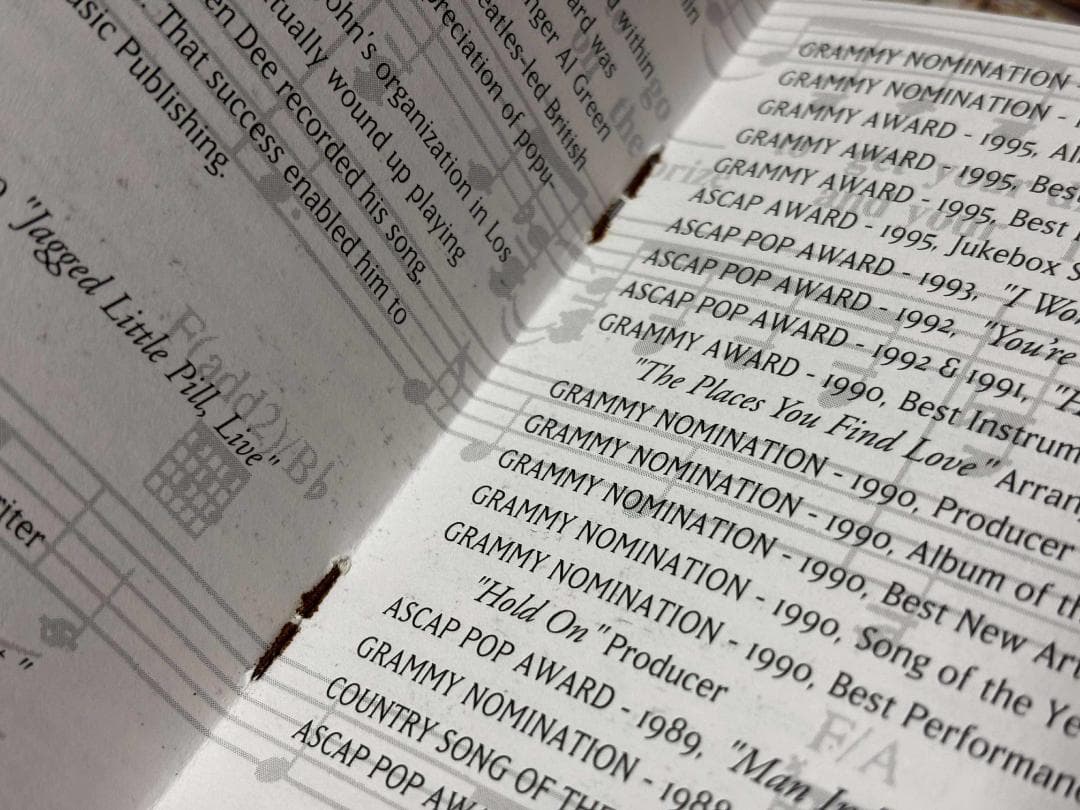 in.
d within go
ard was
nger Al Green
eatles-led British
preciation of popu-
ohn's organization in Los
tually wound up playing
en Dee recorded his song,
. That success enabled him to
usic Publishing.
"Jagged Little Pill, Live"
F(add2)/Bb
riter
"
GRAMMY NOMINATION -
GRAMMY NOMINATION -
GRAMMY AWARD - 1995, Al
GRAMMY AWARD - 1995, Bes
GRAMMY AWARD - 1995, Best
ASCAP AWARD - 1995, Jukebox S
ASCAP POP AWARD - 1993, "I Wo
ASCAP POP AWARD - 1992, "You're
ASCAP POP AWARD - 1992 & 1991, "H
GRAMMY AWARD - 1990, Best Instrum
"The Places You Find Love" Arran
GRAMMY NOMINATION - 1990, Producer
GRAMMY NOMINATION - 1990, Album of th
GRAMMY NOMINATION - 1990, Best New Art
GRAMMY NOMINATION - 1990, Song of the Ye
GRAMMY NOMINATION - 1990, Best Performan
"Hold On" Producer
ASCAP POP AWARD - 1989, "Man In
GRAMMY NOMINATION - 1989
COUNTRY SONG OF THE
ASCAP POP AWA
F/A